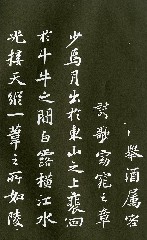 舉酒属客
詩歌窈窕之章
少焉月出於東山之上裵回
於斗牛之間白露橫江水
光接天縱一葦之所如陵